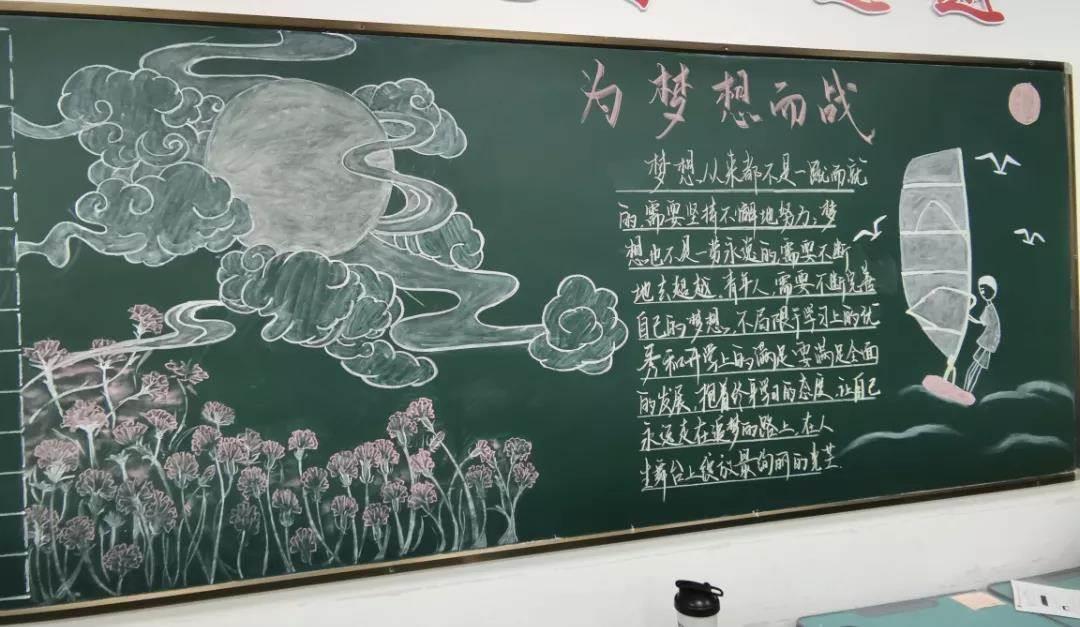 为梦想而战
梦想从来都不是一蹴而就
的,需要坚持不懈地努力,梦
想也不是一劳永逸的,需要不断
地去超越。青年人,需要不断完善
自己的梦想,不局限于学习上的优
秀和升学上的满足要满足全面
的发展,抱着终身学习的态度,让自己
永远走在追梦的路上,在人
生舞台上绽放最绚丽的光芒.